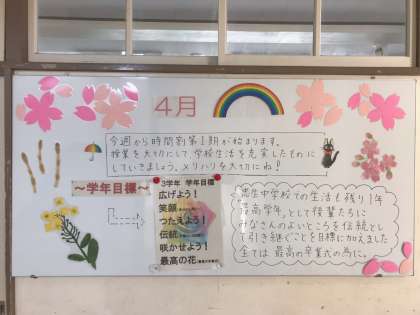 4月
今週から時間割第1期が始まります。
授業を大切にして、学校生活を充実したものに
していきましょう。メリハリを大切にね!
～学年目標～
3学年 学年目標
広げよう!
笑顔
つたえよう!
伝統
咲かせよう!
最高の花
生中学校での生活も残り1年
最高学年として後輩たちに
みなさんのよいところを伝統とし
て引き継ぐことを目標に加えました
全ては最高の卒業式の為に。